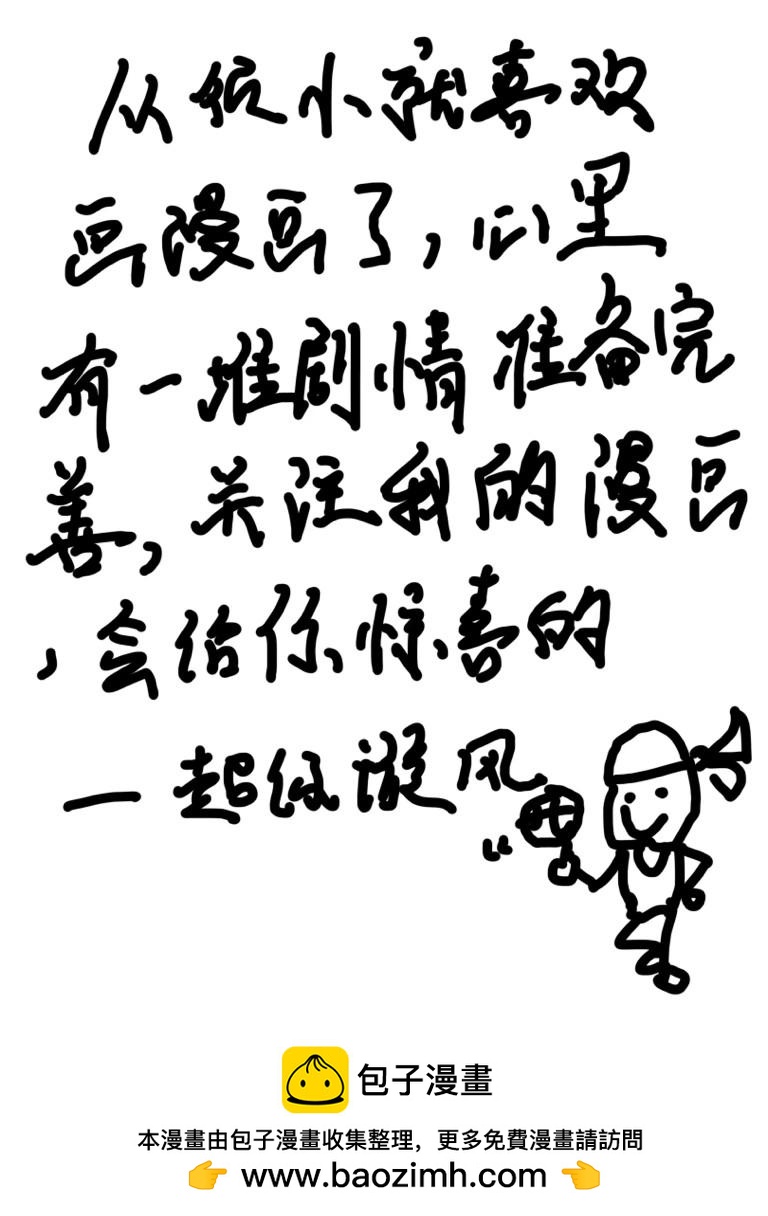 从很小就喜欢
画漫画了,心里
有一堆剧情准备完
善,关注我的漫画
,会给你惊喜的
一超级漩风
包子漫畫
本漫畫由包子漫畫收集整理,更多免費漫畫請訪問
👉 www.baozimh.com 👈